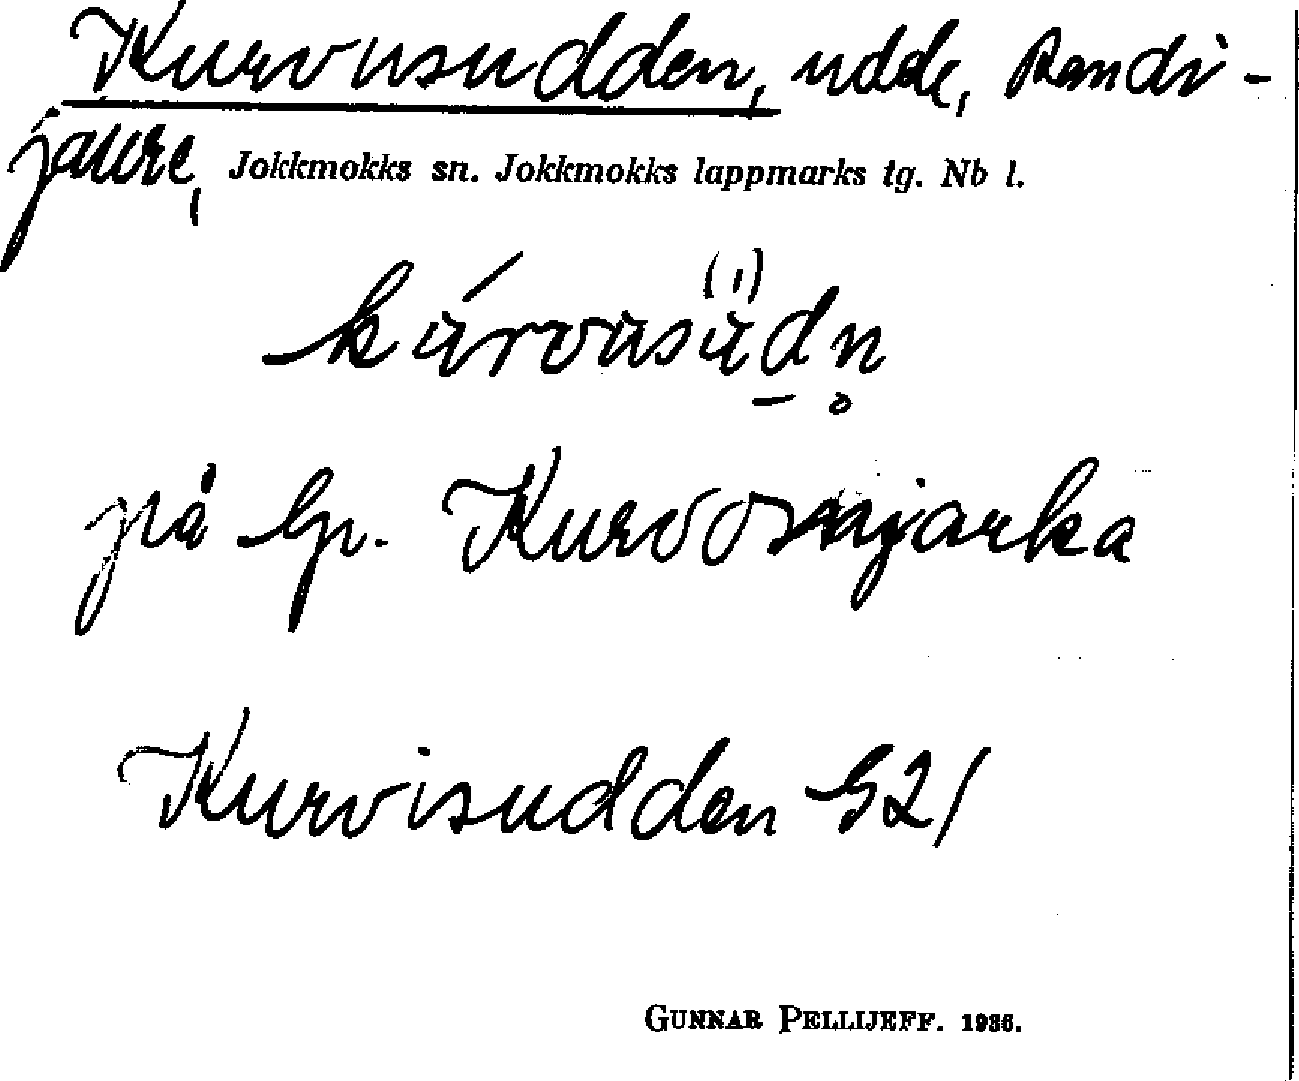 Kurvusudden, udde, Randi-
jaure, Jokkmokks sn. Jokkmokks lappmarks tg. Nb l.
på lp. Kurvosnjarka
Kurvisudden G21
GUNNAR PELLIJEFF. 1936.